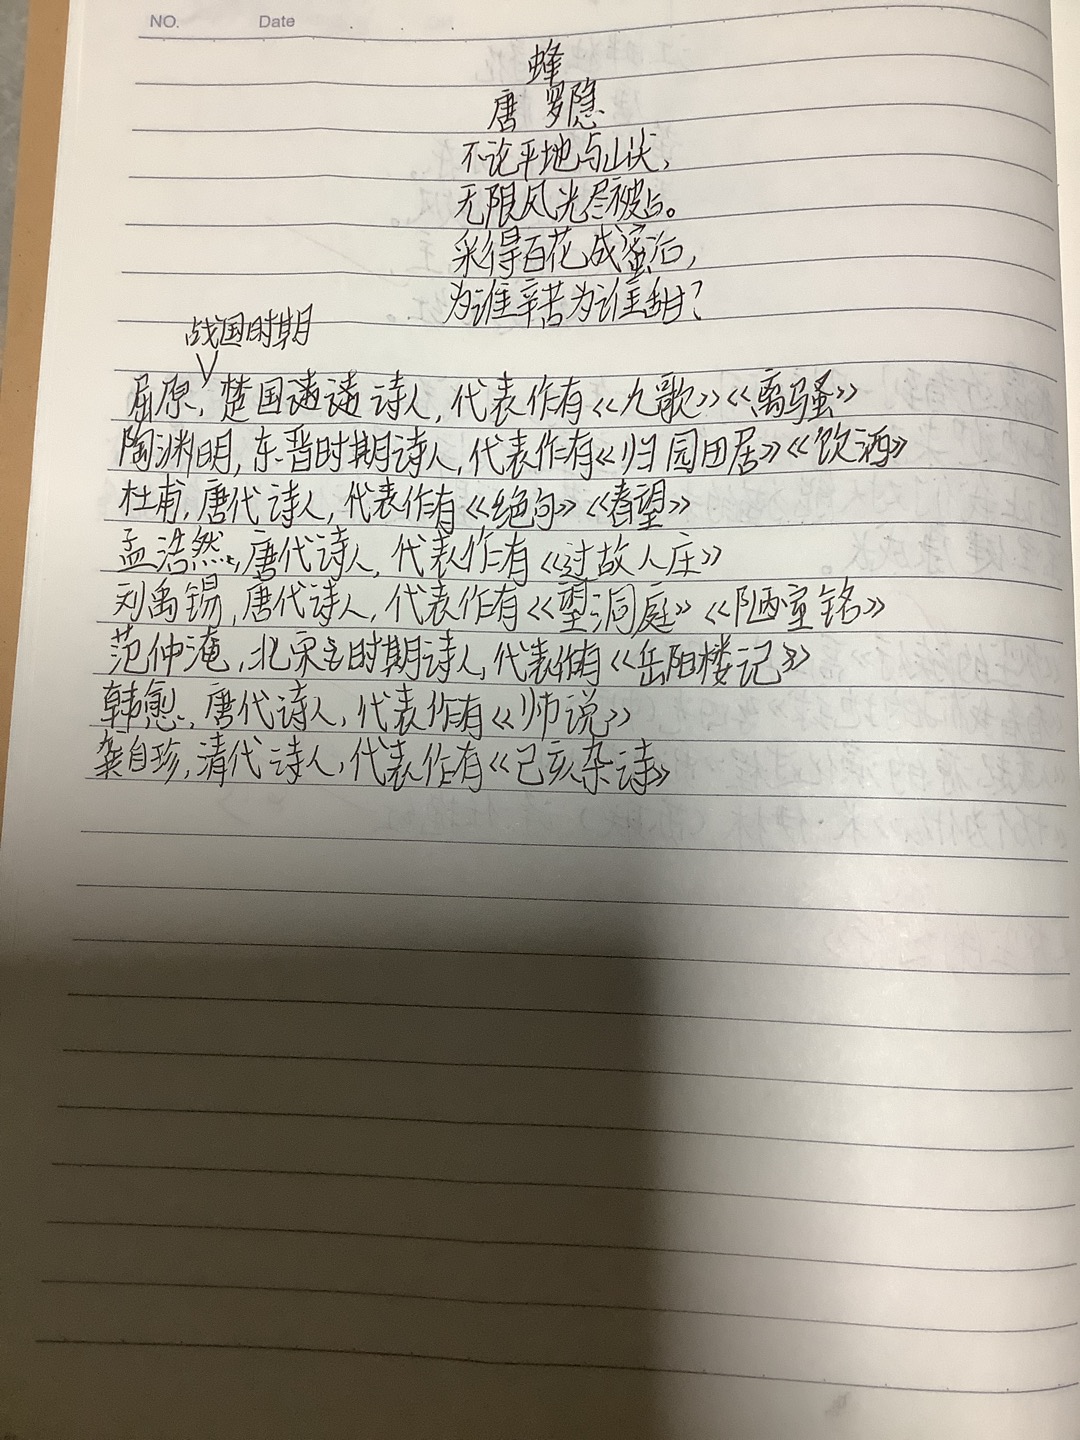 NO. Date
蜂
唐 罗隐
不论平地与山尖,
无限风光尽被占。
采得百花成蜜后,
为谁辛苦为谁甜?
战国时期
屈原,楚国诗人,代表作有《九歌》《离骚》
陶渊明,东晋时期诗人,代表作有《归园田居》《饮酒》
杜甫,唐代诗人,代表作有《绝句》《春望》
孟浩然,唐代诗人,代表作有《过故人庄》
刘禹锡,唐代诗人,代表作有《望洞庭》《陋室铭》
范仲淹,北宋时期诗人,代表作有《岳阳楼记》
韩愈,唐代诗人,代表作有《师说》
龚自珍,清代诗人,代表作有《己亥杂诗》